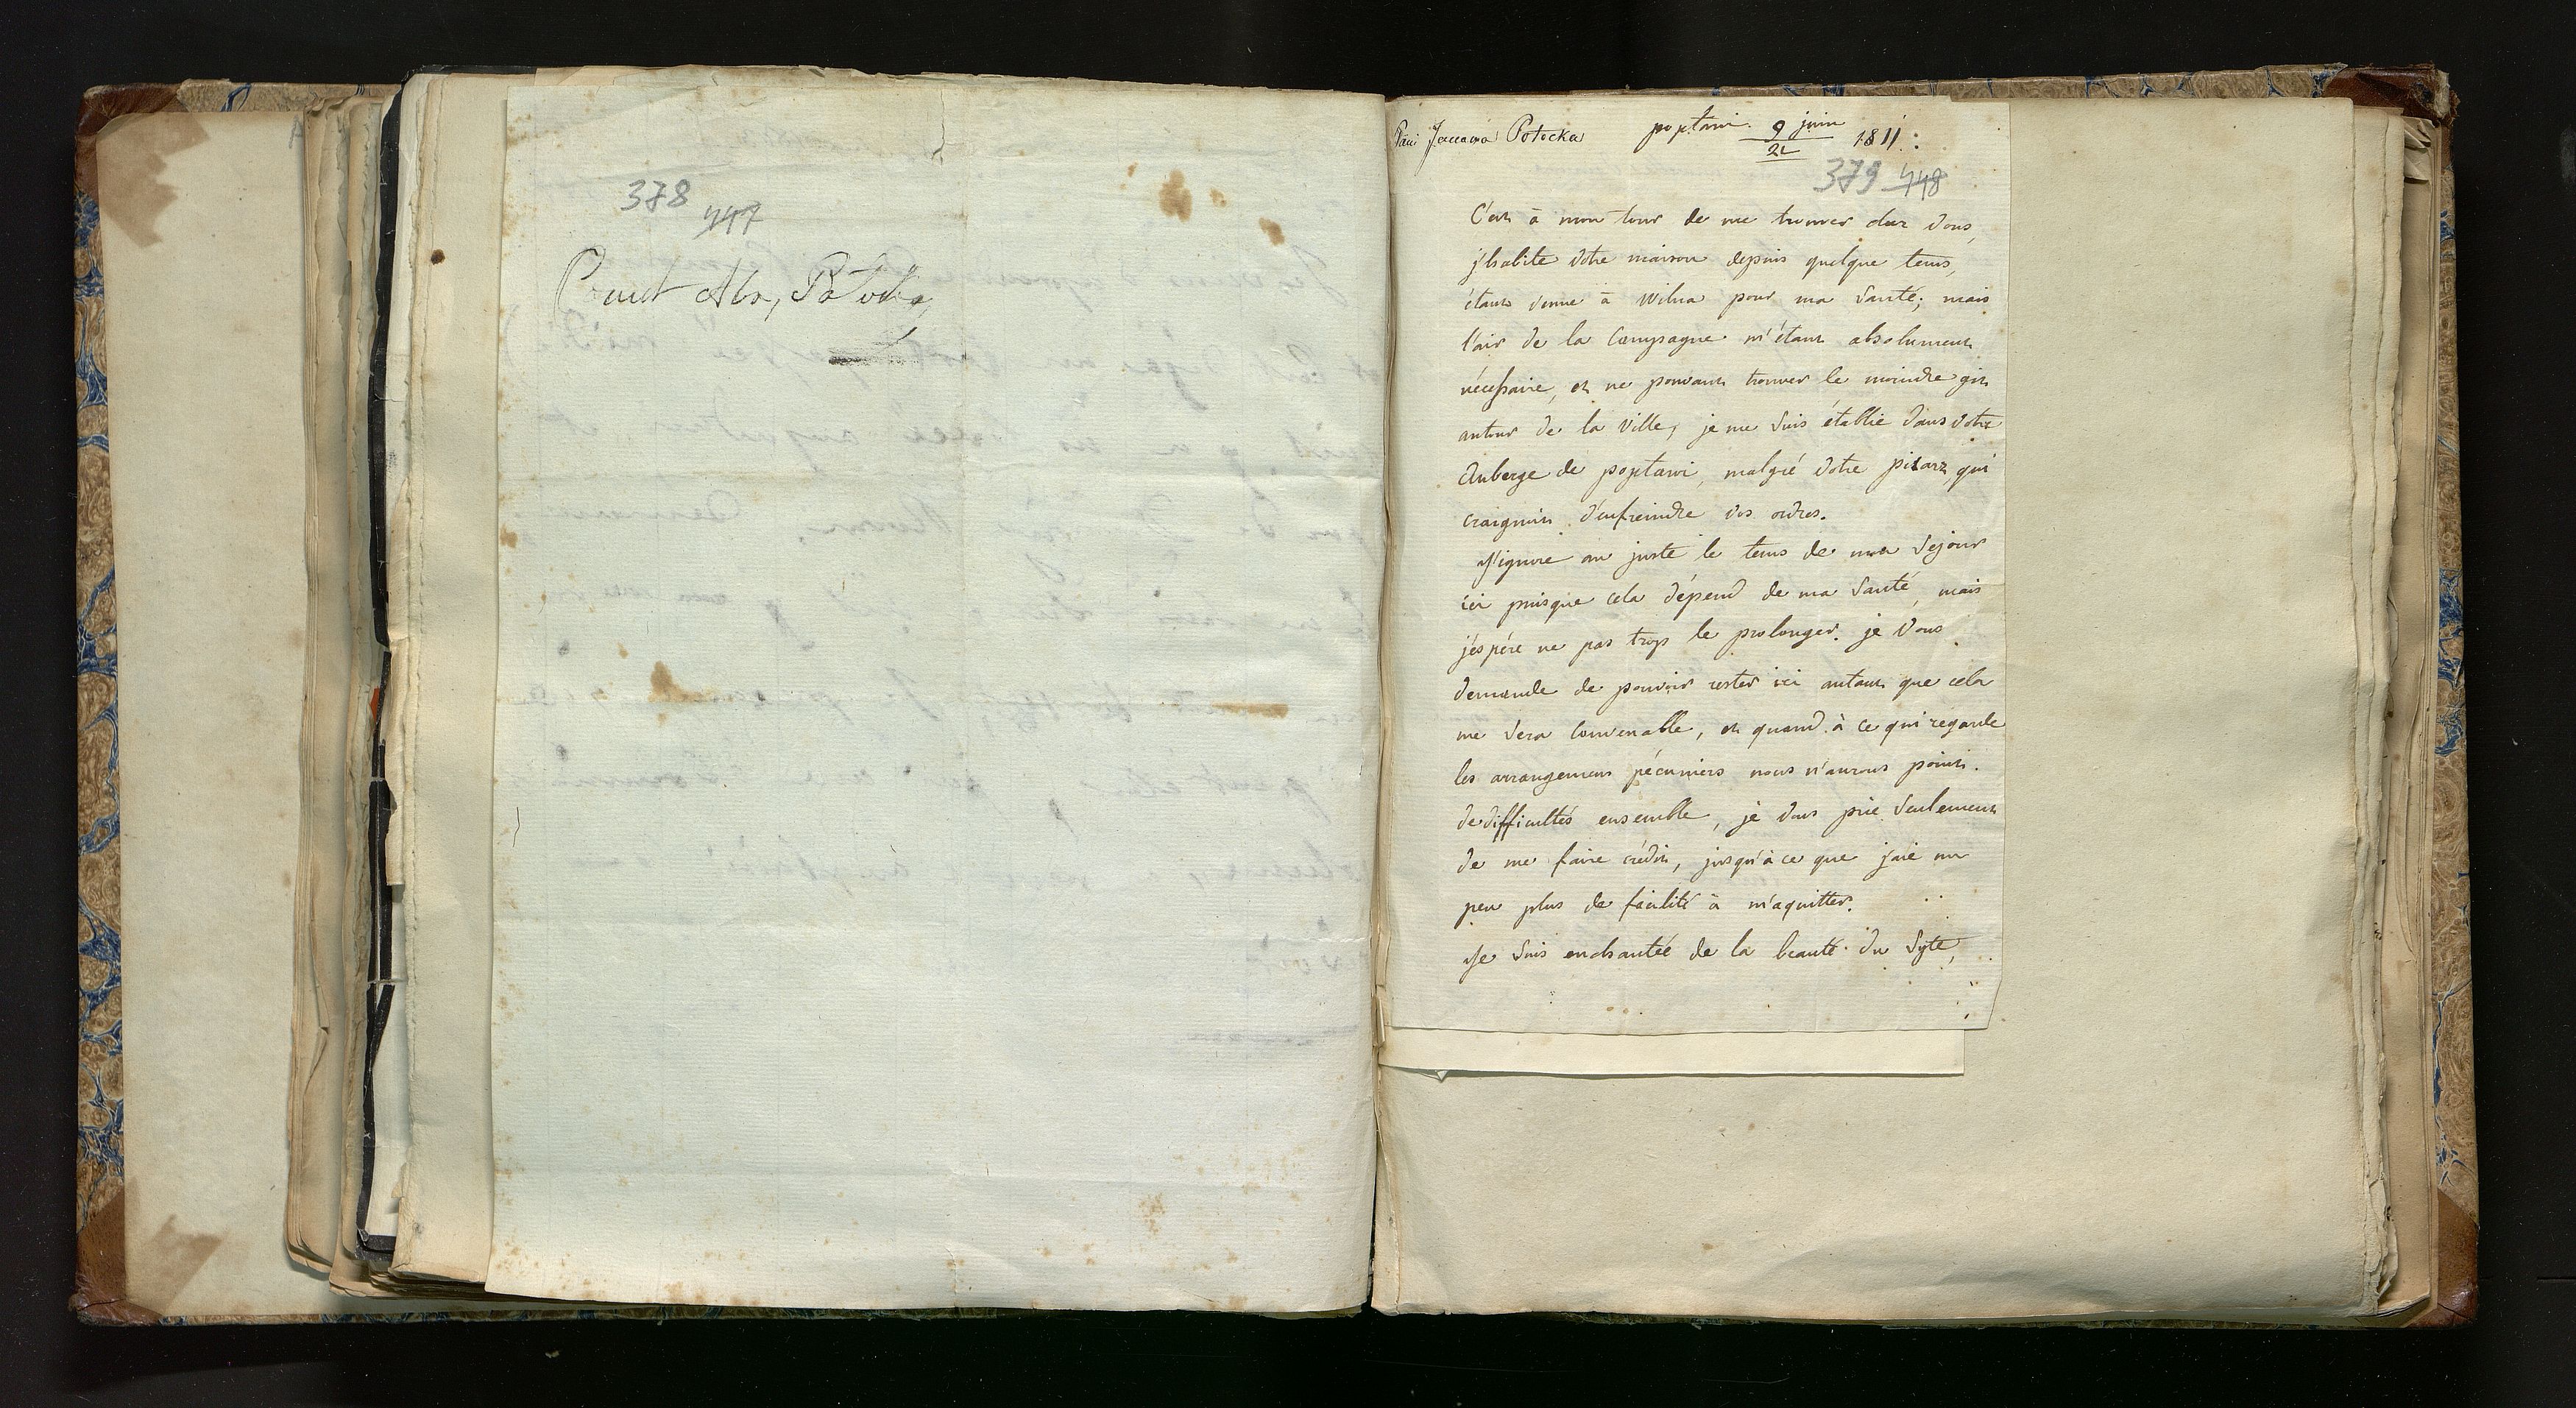 378 447
Comt Alx, Potocka,
Pani Janowa Potocka poptawi. 9 juin 1811:
21
379 448
C'est à mon tour de me trouver chez vous,
j'habite votre maison depuis quelque tems,
étant venue à Wilna pour ma santé; mais
l'air de la Campagne m'étant absolument
nécessaire, et ne pouvant trouver le moindre git
autour de la ville, je me suis établie dans votre
auberge de poptawi, malgré votre pisarz, qui
craignoit d'enfreindre vos ordres.
J'ignore au juste le tems de mon séjour
ici puisque cela dépend de ma santé, mais
j'éspére ne pas trop le prolonger. je vous
demande de pouvoir rester ici autant que cela
me sera convenable, et quand à ce qui regarde
les arrangemens pécuniers nous n'aurons point
de difficultés ensemble, je vous prie seulement
de me faire crédit, jusqu'à ce que j'aie un
peu plus de facilité à m'aquitter.
Je suis enchantée de la beauté du syte,